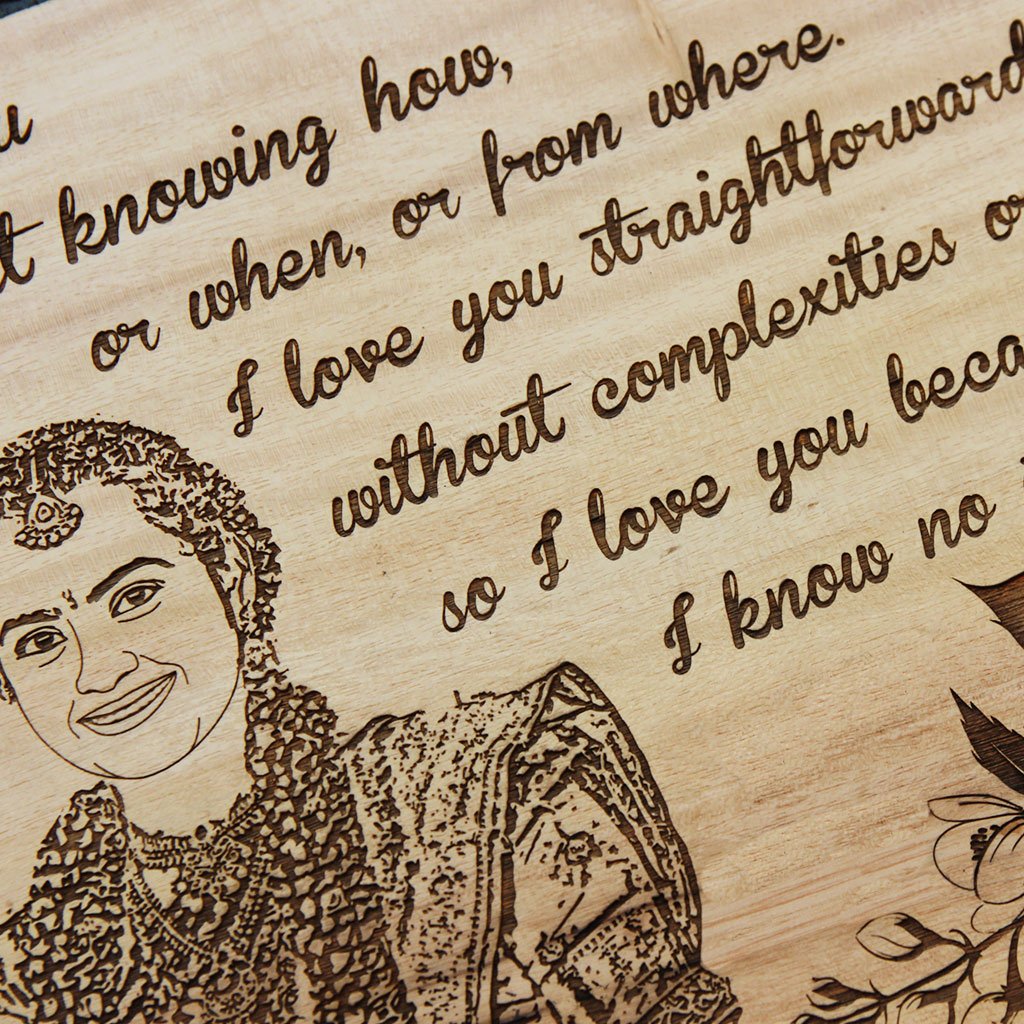 knowing how,
or when, or from where.
I love you straightforward
without complexities or
so I love you beca
I know no